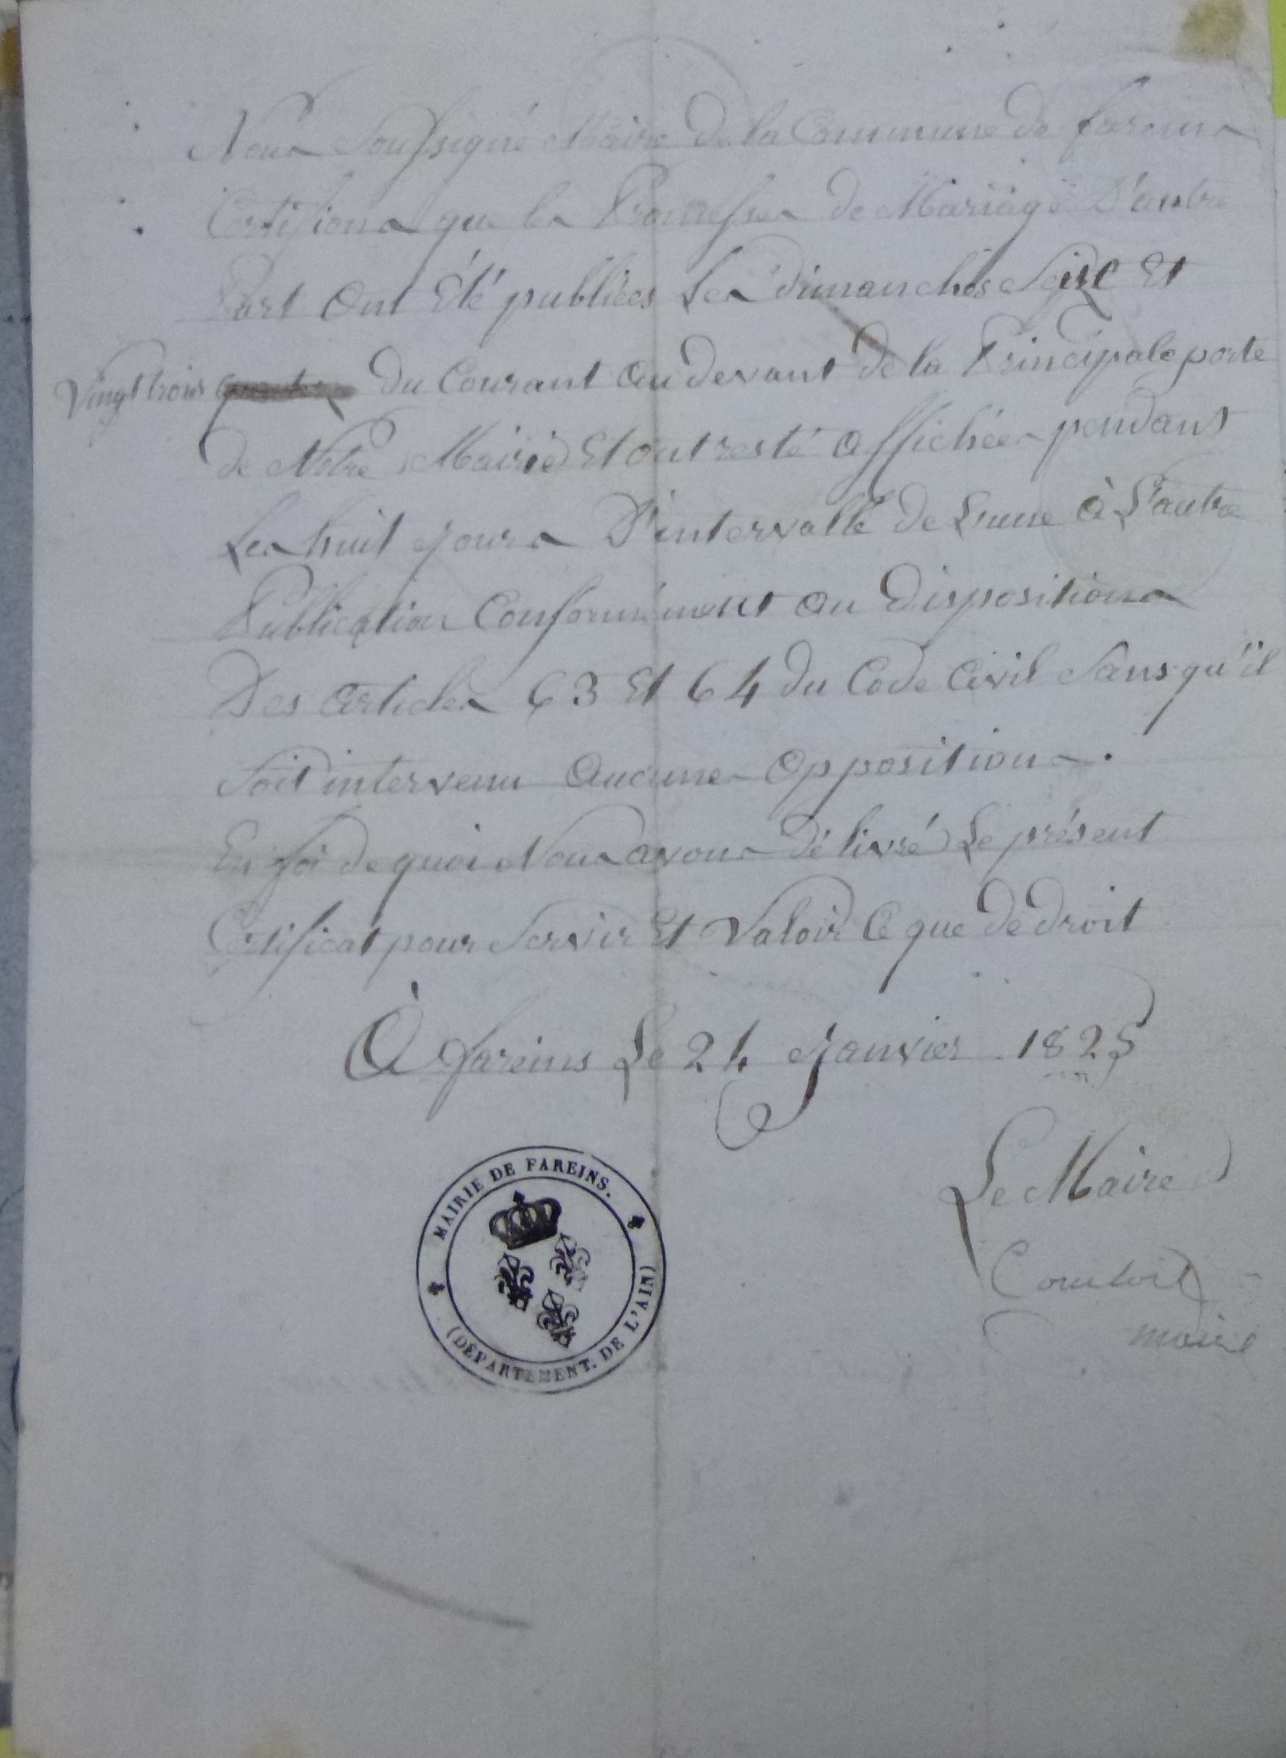 Nous Soussigné Maire de la Commune de fareins
Certifions que les Promesses de Mariage D'autre
Part Ont Eté publiées Les dimanches Seize Et
Vingt trois du Courant Au devant de la Principale porte
de Notre Mairie Et ont resté affichées pendant
Les huit jours D'intervalle de L'une à L'autre
Publication Conformément au Dispositions
Des articles 63 Et 64 du Code Civil Sans qu'il
Soit intervenu Aucune Opposition.
En foi de quoi Nous avons délivré Le présent
Certificat pour Servir Et Valoir Ce que de droit
À fareins Le 24 Janvier 1825
Le Maire
maire
MAIRIE DE FAREINS.
(DÉPARTEMENT. DE L'AIN)